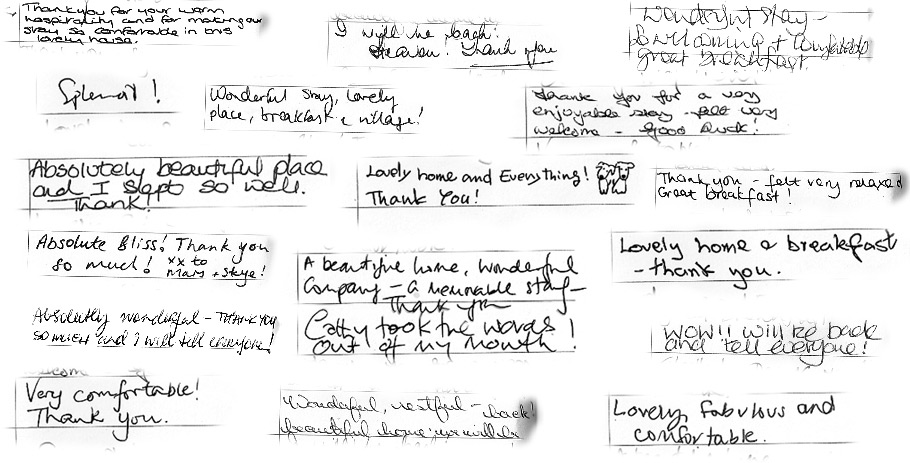 Thank you for your warm
hospitality and for making our
stay so comfortable in this
lovely house.
I will be back!
Heaven! Thank you
Wonderful stay -
& comfortable
great breakfast.
Splendid!
Wonderful stay, lovely
place, breakfast & village!
Thank you for a very
enjoyable stay - felt very
welcome - Good luck!
Absolutely beautiful place
and I slept so well.
Thank.
Lovely home and Everything!
Thank You!
Thank you - felt very relaxed
Great breakfast!
Absolute Bliss! Thank you
so much! xx to
+ Skye!
A beautiful home, wonderful
Company - a memorable stay -
Thank you
Lovely home & breakfast
- thank you.
Absolutely wonderful - THANK YOU
so much and I will tell everyone!
Cathy took the words
out of my mouth!
WOW!! will be back
and tell everyone!
Very comfortable!
Thank you.
Wonderful, restful - back!
beautiful home; we will be
Lovely, fabulous and
comfortable.